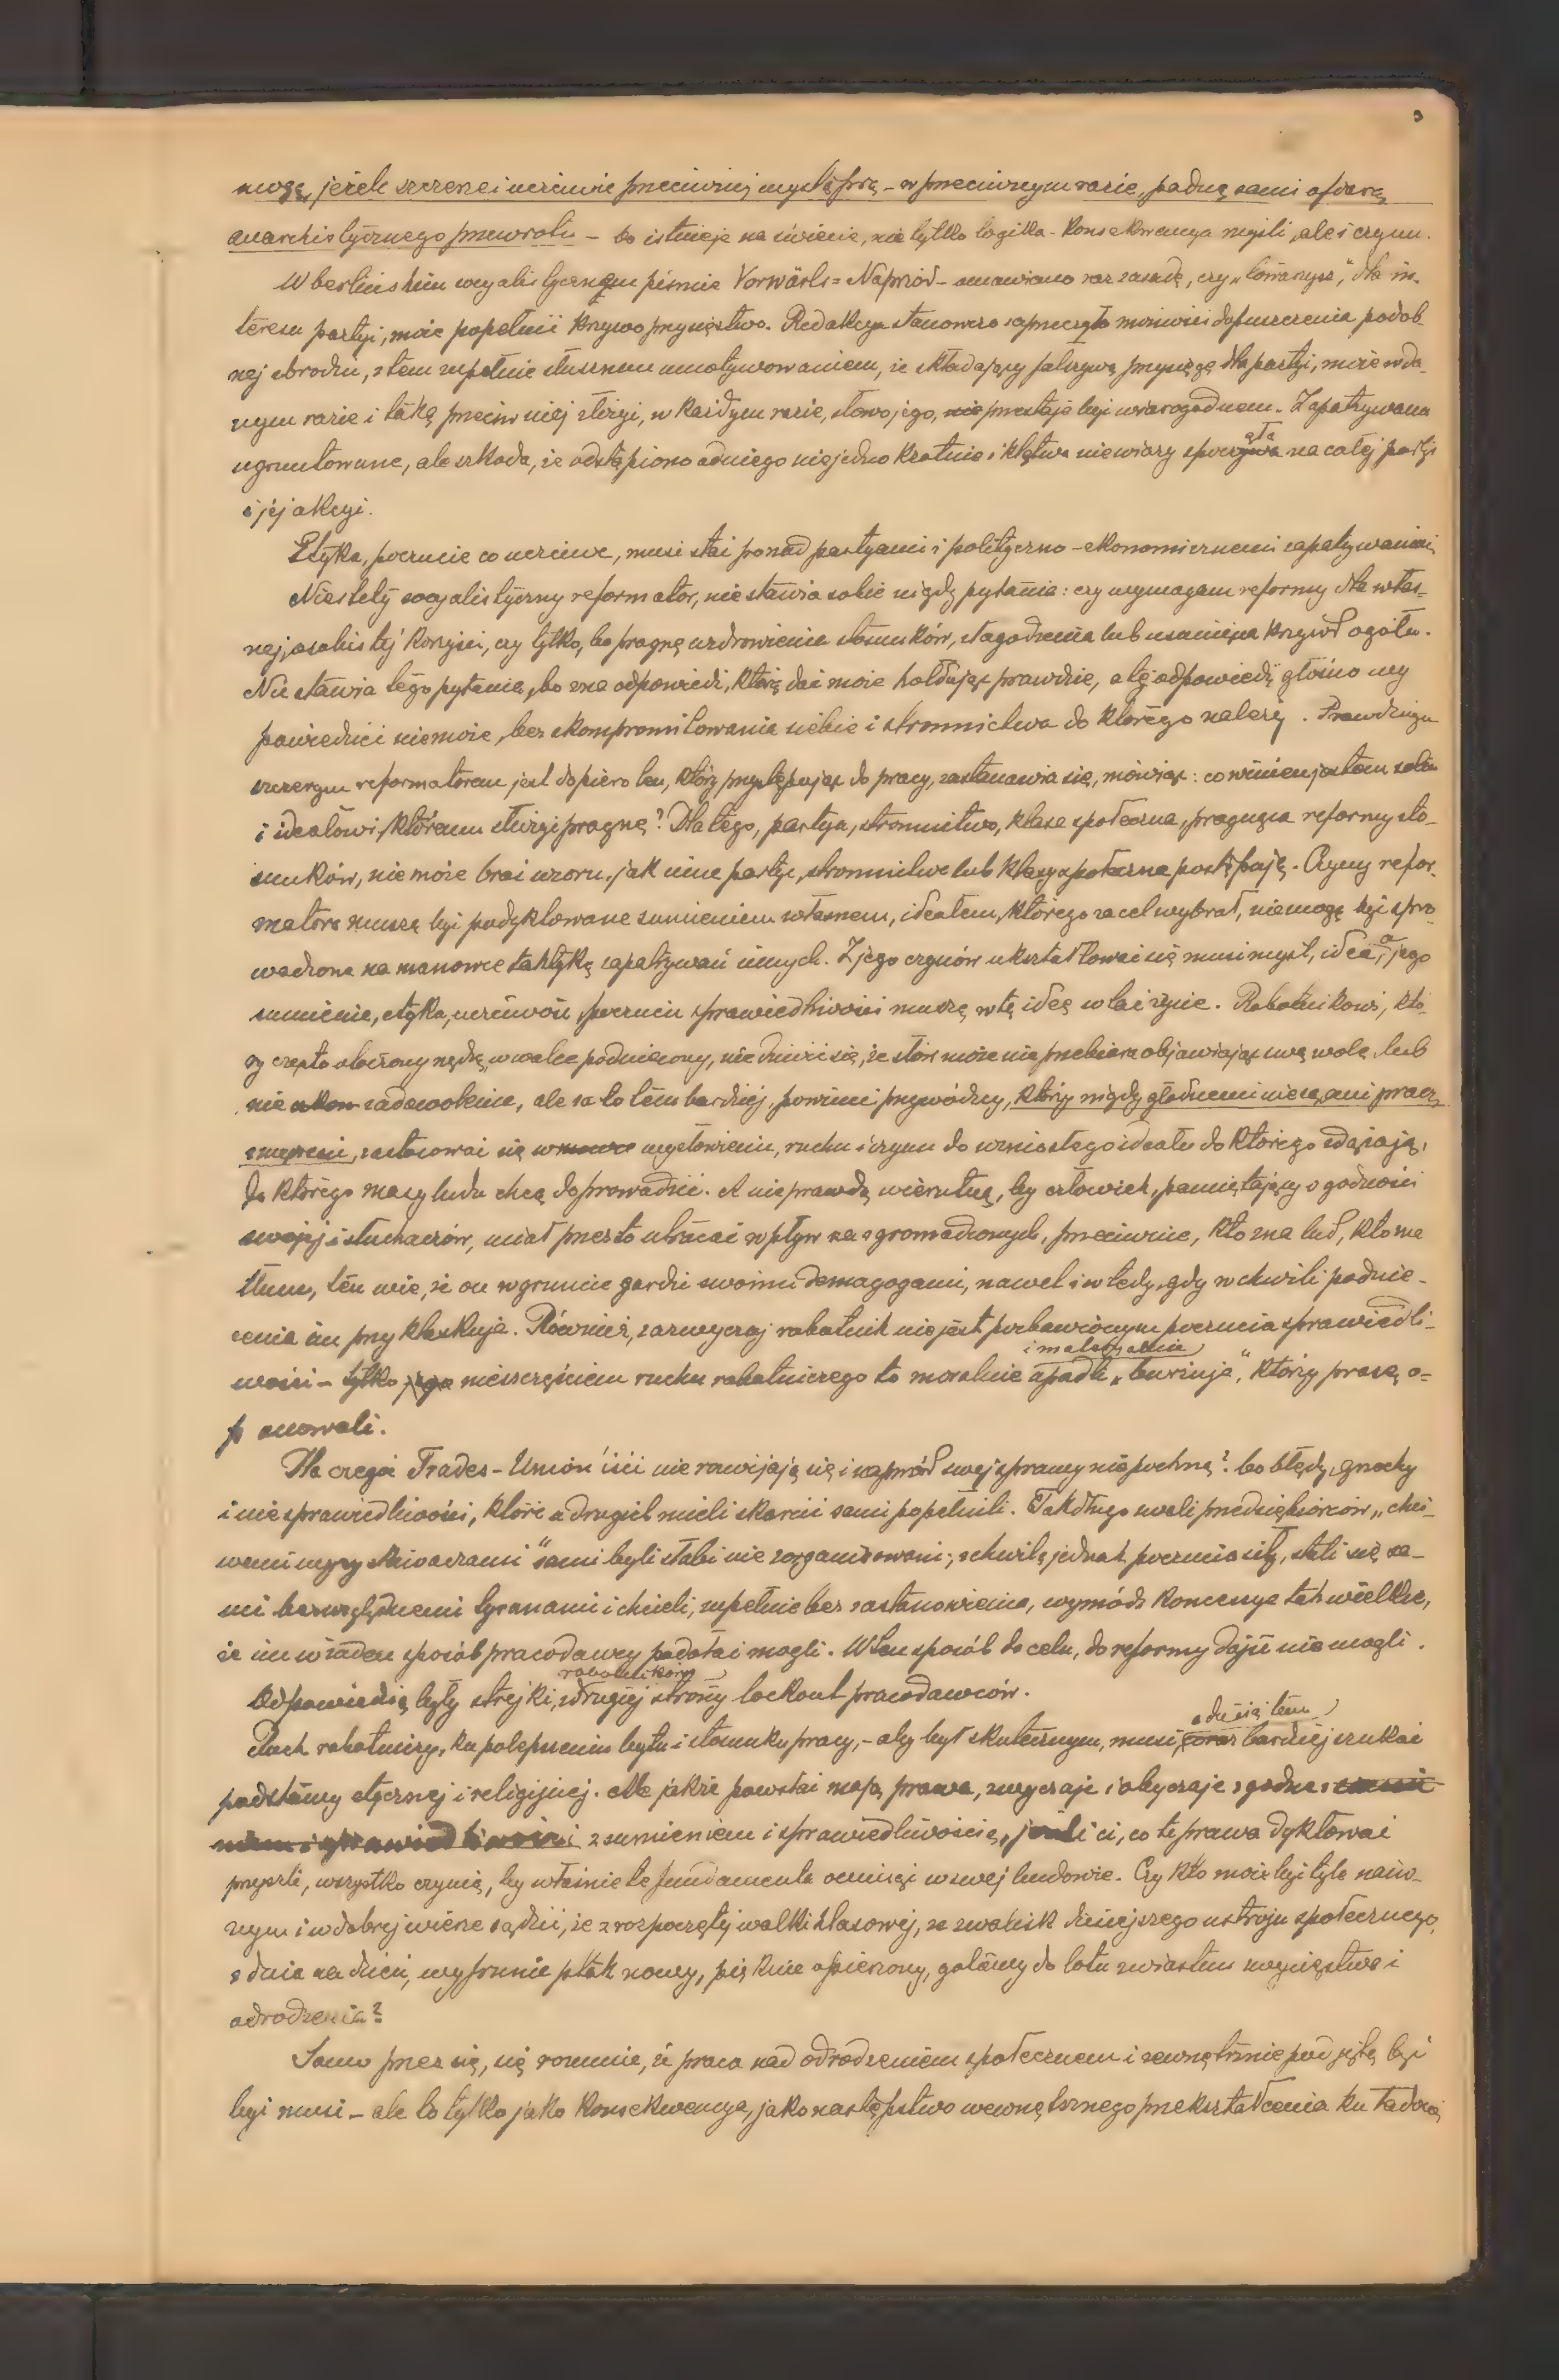 mogą, jeżeli szczerze i uczciwie przeciwniej myślą prą – w przeciwnym razie, padną sami ofiarą
anarchistycznego przewrotu – bo istnieje na świecie, nie tylko logika - konsekwencya myśli, ale i czynu.
W berlińskim socyalistycznem piśmie Vorwärts = Naprzód – omawiano raz zasadę, czy „towarzysz”, dla in-
teresu partyi, może popełnić krzywoprzysięstwo. Redakcya stanowczo zaprzeczyła możności dopuszczenia podob-
nej zbrodni, z tem zupełnie słusznem umotywowaniem, że składający fałszywą przysięgę dla partyi, może w da-
nym razie i taką przeciw niej złożyć, w każdym razie, słowo jego, nie przestaje być wiarogodnem. Zapatrywanie
ugruntowane, ale szkoda, że odstąpiono od niego niejedno krotnie i klątwa niewiary spoczęła na całej partyi
i jéj akcyi.
Etyka, poczucie co uczciwe, musi stać ponad partyami i polityczno-ekonomicznemi zapatrywaniami.
Niestety socyalistyczny reformator, nie stawia sobie nigdy pytania: czy wymagam reformy dla włas-
nej, osobistéj korzyści, czy tylko, bo pragnę uzdrowienia stosunków, złagodzenia lub usunięcia krzywd ogółu.
Nie stawia tego pytania, bo zna odpowiedź, którą dać może hołdując prawdzie, a tej odpowiedzi głośno wy
powiedzieć nie może, bez skompromitowania siebie i stronnictwa do którego należy. Prawdziwym
szczerym reformatorem jest dopiero ten, który przystępując do pracy, zastanawia się, mówiąc: co winien jestem sobie
i ideałowi, któremu służyć pragnę? Dla tego, partya, stronnictwo, klasa społeczna, pragnąca reformy sto-
sunków, nie może brać wzoru, jak inne partye, stronnictwa lub klasy społeczne postępują. Czyny refor-
matora muszą być podyktowane sumieniem własnem, ideałem, którego za cel wybrał, nie mogą być spro-
wadzone na manowce taktyką zapatrywań innych. Z jego czynów ukształtować się musi myśl, idea, a jego
sumienie, etyka, uczciwość, poczucie sprawiedliwości muszą w tę ideę wlać życie. Robotnikowi, któ-
ry często otoczony nędzą, w walce podniecony, nie dziwić się, że słów może nie przebiera objawiając swą wolę, lub
nie zadowolenie, ale za to tém bardziej, powinni przywódzcy, którzy nigdy głodnemi nie są, ani pracą
zmęczeni, zastosować się w wysłowieniu, ruchu i czynu do wzniosłego ideału do którego zdążają,
do którego masy ludu chcą doprowadzić. A nieprawdą wierutną, by człowiek, pamiętający o godności
swojej i słuchaczów, miał przez to utracać wpływ na zgromadzonych, przeciwnie, kto zna lud, kto zna
tłum, ten wie, że on w gruncie gardzi swoimi demagogami, nawet i wtedy, gdy w chwili podnie-
cenia im przyklaskuje. Również, zazwyczaj robotnik nie jest pozbawionym poczucia sprawiedli-
wości – tylko jego nieszczęściem ruchu robotniczego to moralnie i materyalnie upadli „burżuje”, którzy prasę o-
panowali.
Dla czegoż Trades-Union'iści nie rozwijają się i naprzód swej sprawy nie pochną? bo błędy, grzechy
i niesprawiedliwości, które u drugich mieli skarcić sami popełnili. Tak długo zwali przedsiębiorców „chci-
wemi wyzyskiwaczami” sami byli słabi nie zorganizowani; z chwilą jednak poczucia siły, stali się sa-
mi bezwzględnemi tyranami i chcieli, zupełnie bez zastanowienia, wymódz koncesye tak wielkie,
że im w żaden sposób pracodawcy podołać mogli. W ten sposób do celu, do reformy dojść nie mogli.
Odpowiedzią były strejki robotników, z drugiéj strony lockout pracodawców.
Ruch robotniczy, ku polepszeniu bytu i stosunku pracy, – aby był skutecznym, musi coraz bardziéj szukać
podstawy etycznej i religijnej. Ale jakże powstać mają prawa, zwyczaje i obyczaje zgodne
z sumieniem i sprawiedliwością, jeżeli ci, co te prawa dyktować
przyszli, wszystko czynią, by właśnie te fundamenta ominąć w swej budowie. Czy kto może być tyle naiw-
nym i w dobrej wierze sądzić, że z rozpoczętej walki klasowéj, ze zwalisk dzisiejszego ustroju społecznego,
z dnia na dzień, wyfrunie ptak nowy, pięknie opierzony, gotowy do lotu zwiastun zwycięstwa i
odrodzenia?
Samo przez się, się rozumie, że praca nad odrodzeniem społecznem i zewnętrznie podjętą być
być musi – ale to tylko jako konsekwencya, jako następstwo wewnętrznego przekształcenia ku ładowi,